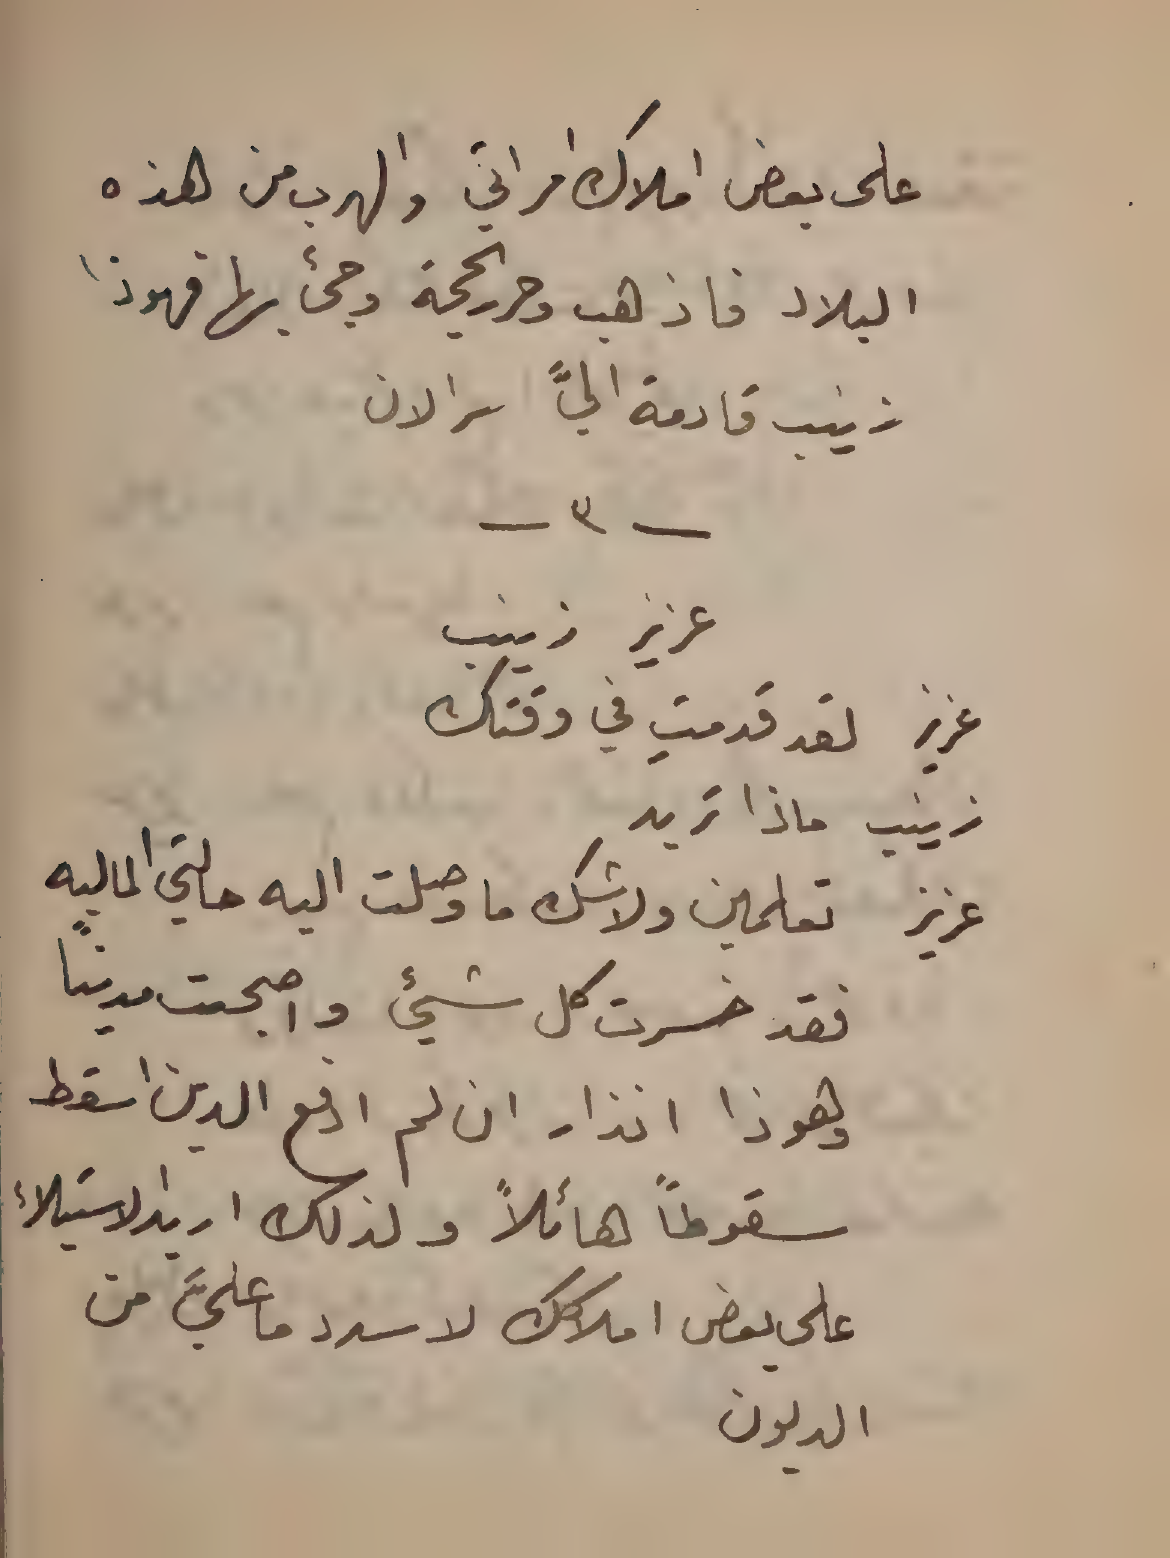 على بعض املاك امراتي والهرب من هذه
البلاد فاذهب وحرر الحجة وجئ بها فهوذا
زينب قادمة اليَّ سر الان
— ٣ —
عزيز زينب
عزيز لقد قدمتِ في وقتك
زينب ماذا تريد
عزيز تعلمين ولا شك ما وصلت اليه حالتي الماليه
فقد خسرت كل شيئ واصبحت مديناً
وهوذا انذار ان لم ادفع الدين اسقط
سقوطاً هائلاً ولذلك اريد الاستيلاء
على بعض املاكك لاسدد ما عليَّ من
الديون